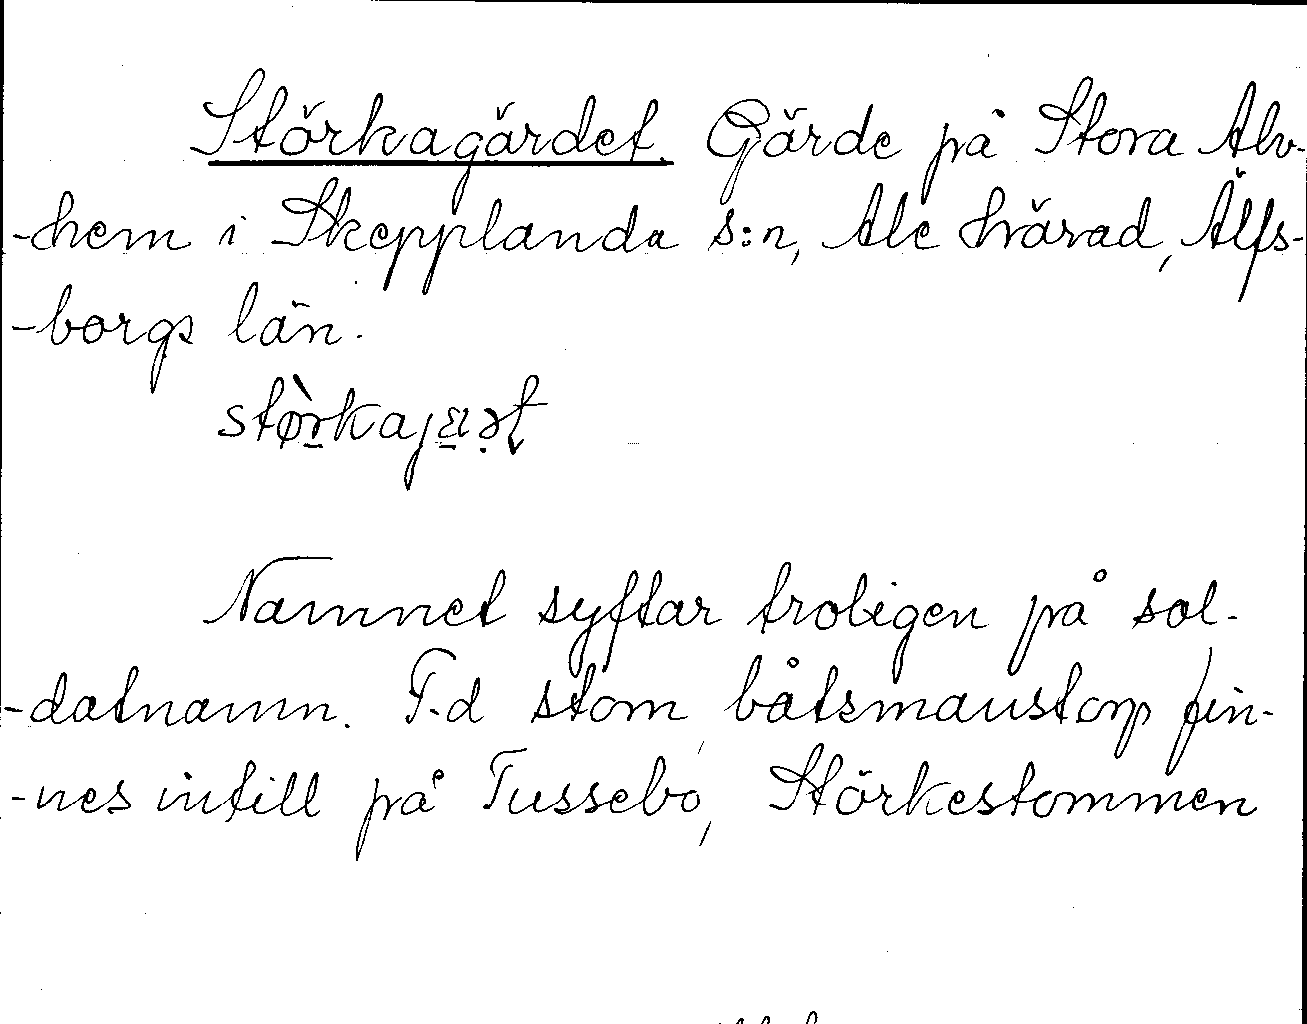 Störkagärdet. Gärde på Stora Alv-
-hem i Skepplanda s:n, Ale härad, Älfs-
-borgs län.
Namnet syftar troligen på sol-
-datnamn. F.d stom, båtsmanstorp fin-
-nes intill på Tussebo, Störkestommen